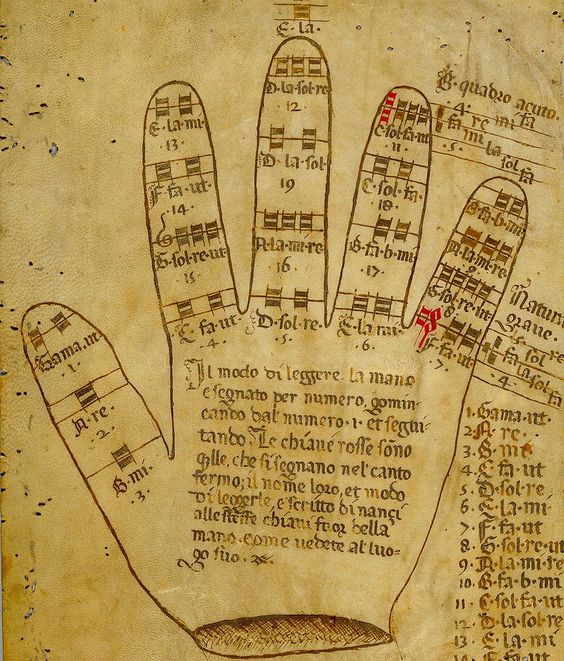 E · la ·
D · la · sol · re ·
12 ·
D · la · sol ·
19
A · la · mi · re
16 ·
D · sol · re ·
5 ·
E · la · mi ·
13 ·
F · fa · ut
· 14 ·
G · sol · re · ut
15
C · fa · ut ·
· 4 ·
C · sol · fa · ut
11
C · sol · fa ·
18 ·
B · fa · b · mi
· 17 ·
E · la · mi ·
6 ·
B · fa · b · mi
A · la · mi · re
G · sol · re · ut
8
F · fa · ut ·
· 7 ·
B · quadro acuto ·
· 4 · re mi fa
fa mi la sol fa
· 5 ·
Natura
grave ·
Gama · ut
· 1 ·
A · re ·
· 2 ·
B · mi
· 3 ·
Il modo di leggere la mano
e segnato per numero, gomin
cando dal numero · 1 · et segui
tando · Le chiaue rosse sono
q̃lle, che si segnano nel canto
fermo; il nome loro, et modo
di leggerle, e scritto di nanci
alle steffe chiaui fuor della
mano · come vedete al luo-
go suo ·
1 · Gama · ut ·
2 · A · re ·
3 · B · mi
4 · C · fa · ut
5 · D · sol · re
6 · E · la · mi
7 · F · fa · ut
8 · G · sol · re · ut
9 · A · la · mi · re
10 · B · fa · b · mi
11 · C · sol · fa · ut
12 · D · la · sol · re
13 · E · la · mi
14 · F · fa · ut